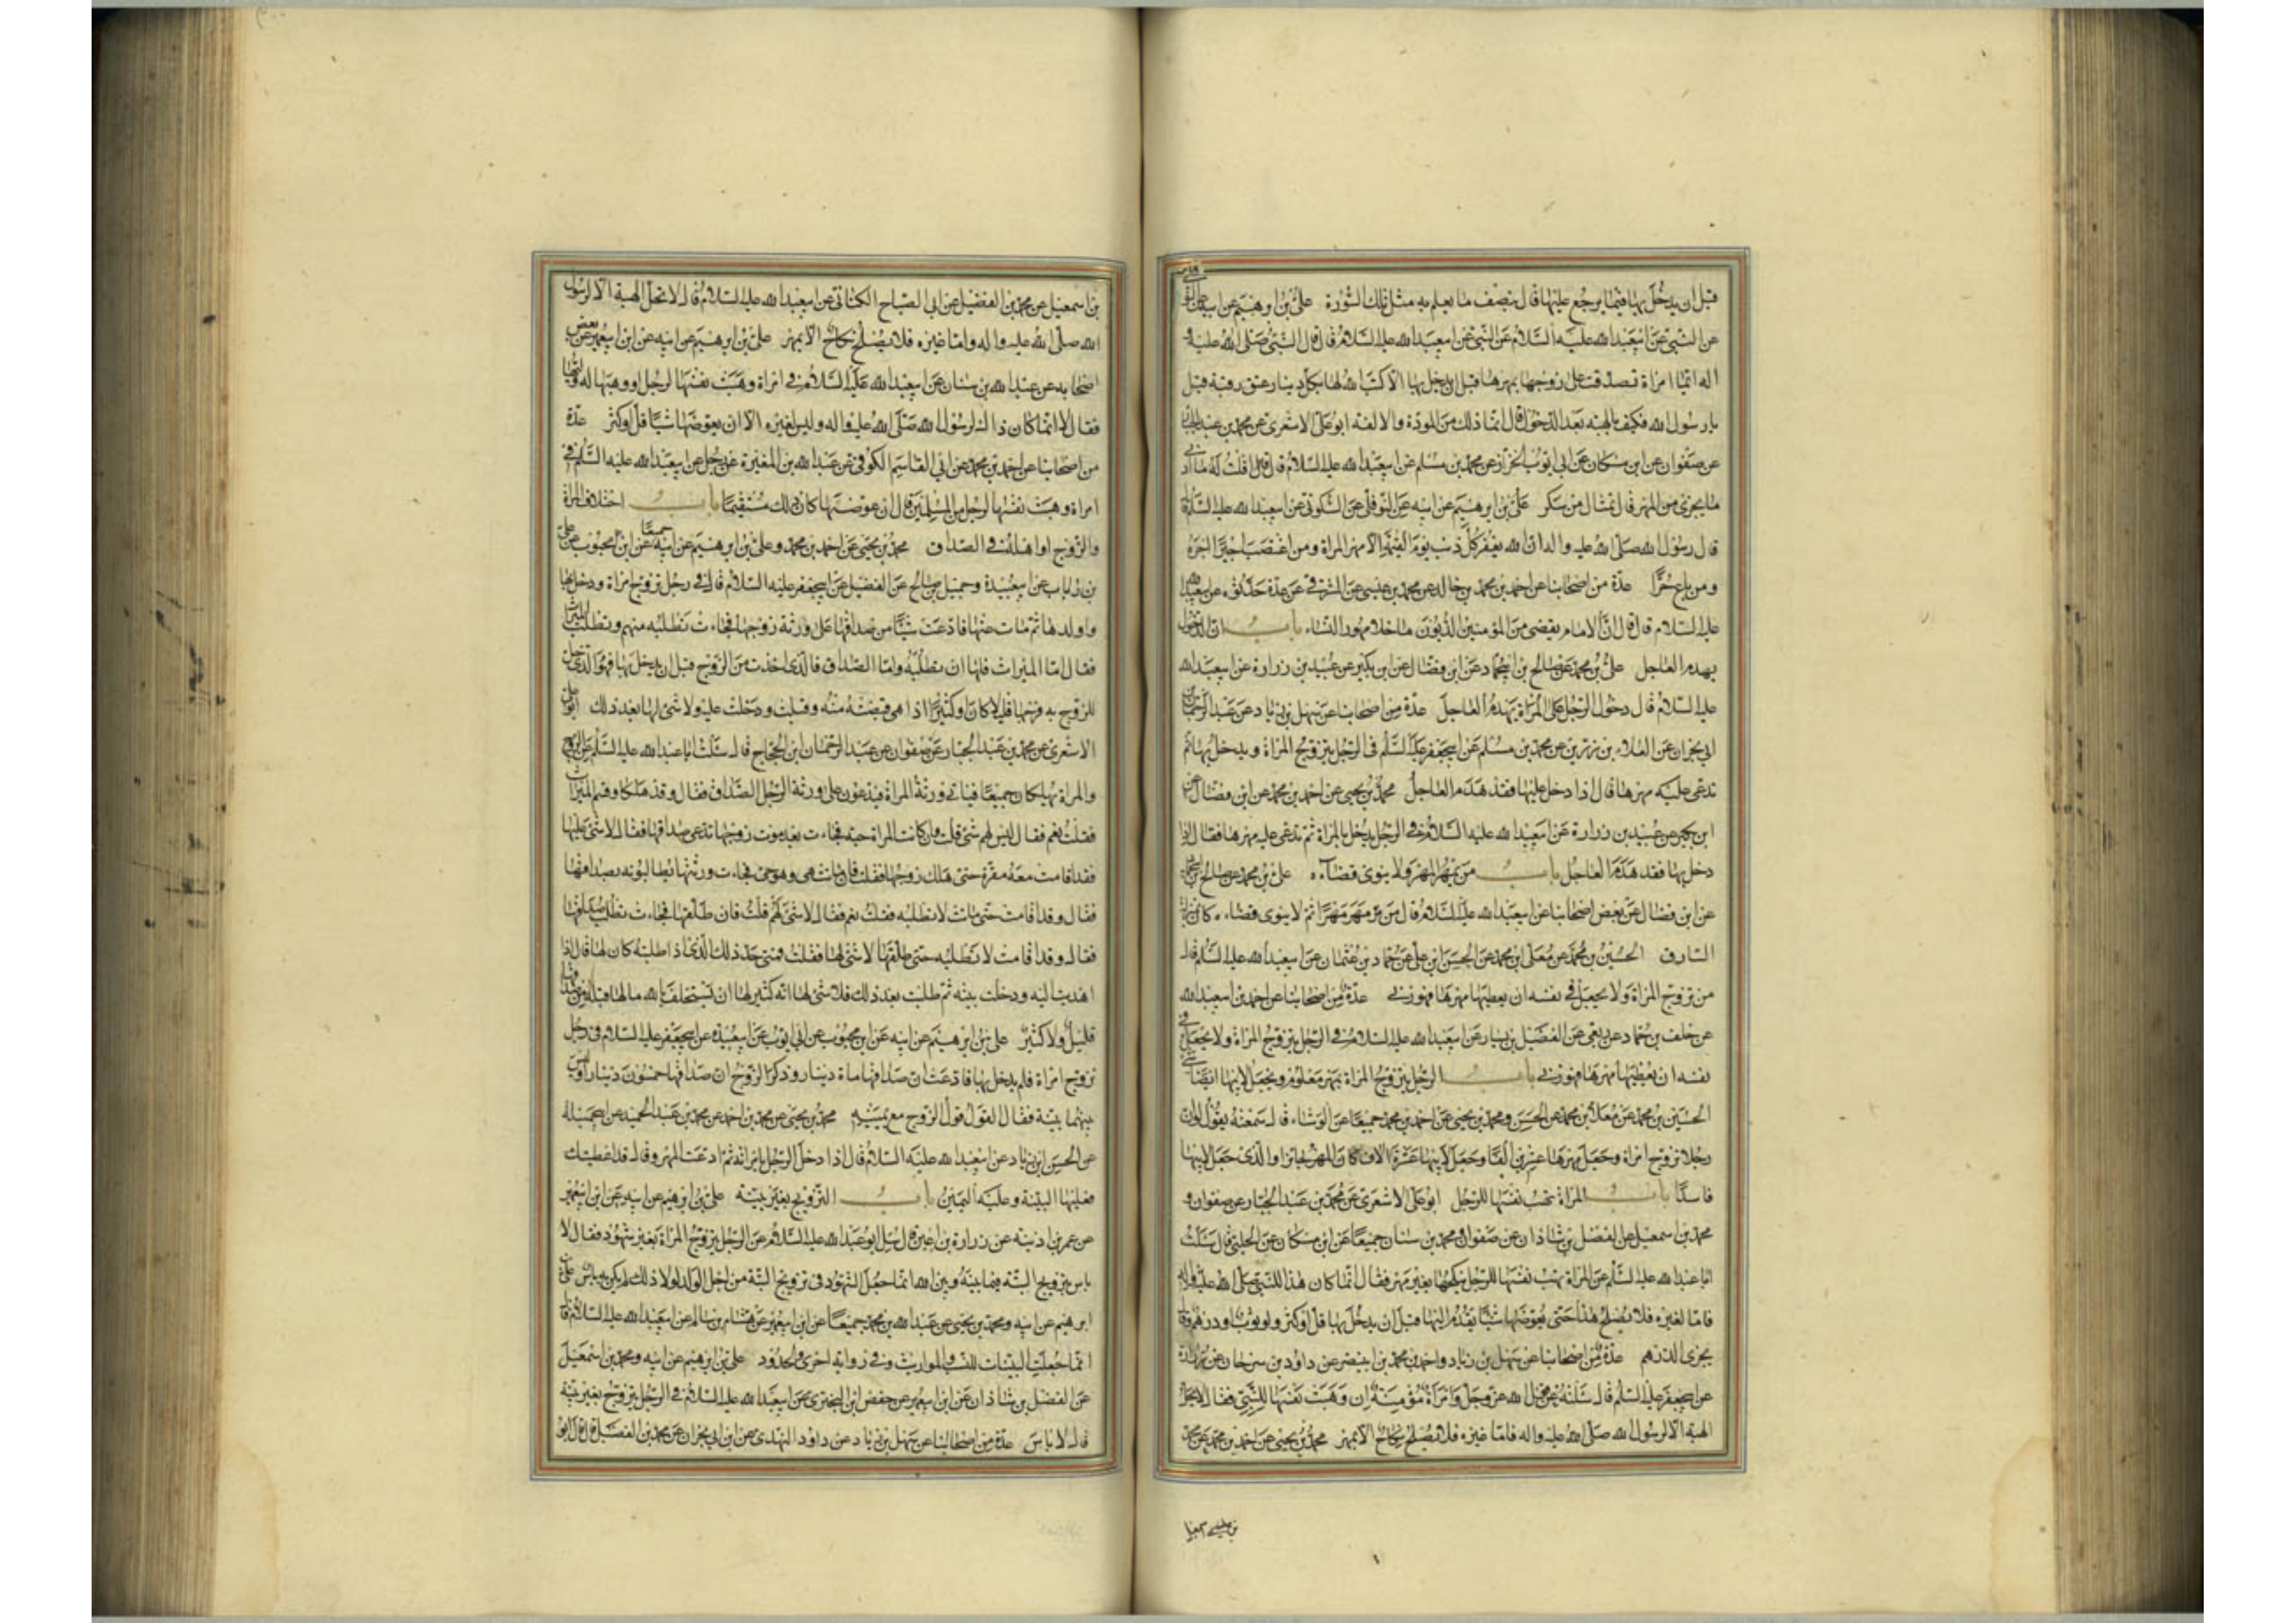 قبل ان يدخل بها فبما يرجع عليها قال بنصف ما يعلم به مثل تلك السورة علي بن ابرهيم عن ابيه
عن ابيعبد الله عليه السلام قال قال النبي صلى الله عليه و
اله ايما امراة تصدقت على زوجها بمهرها قبل ان يدخل بها الا كتب الله لها بكل دينار عتق رقبة قيل
يا رسول الله فكيف بالهبة بعد الدخول قال انما ذلك من المودة والالفة ابو علي الاشعري عن محمد بن عبد الجبار
عن صفوان عن ابن مسكان عن ابي ايوب الخزاز عن محمد بن مسلم عن ابيعبد الله عليه السلام قال قلت له ما ادنى
ما يجزي من المهر قال تمثال من سكر علي بن ابرهيم عن ابيه عن النوفلي عن السكوني عن ابيعبد الله عليه السلام
قال رسول الله صلى الله عليه واله ان الله يغفر كل ذنب يوم القيمة الا مهر امراة ومن اغتصب اجيرا اجره
ومن باع حرا عدة من اصحابنا عن احمد بن محمد بن خالد عن محمد بن عيسى عن المشرقي عن عدة حدثوه عن ابيعبد الله
عليه السلام قال قال ان الامام يقضي من المؤمنين الديون ما خلا مهور النساء باب ان الدخول
يهدم العاجل علي بن محمد عن صالح بن ابي حماد عن ابن فضال عن ابن بكير عن عبيد بن زرارة عن ابيعبد الله
عليه السلام قال دخول الرجل على المراة يهدم العاجل عدة من اصحابنا عن سهل بن زياد عن عبد الرحمن بن
ابي نجران عن العلاء بن رزين عن محمد بن مسلم عن ابيجعفر عليه السلم في الرجل يتزوج المراة ويدخل بها ثم
تدعي عليه مهرها قال اذا دخل عليها فقد هدم العاجل محمد بن يحيى عن احمد بن محمد عن ابن فضال عن
ابن بكير عن عبيد بن زرارة عن ابيعبد الله عليه السلام في الرجل يدخل بالمراة ثم تدعي عليه مهرها فقال اذا
دخل بها فقد هدم العاجل باب من يمهر المهر ولا ينوي قضاه علي بن محمد عن صالح بن ابي حماد
عن ابن فضال عن بعض اصحابنا عن ابيعبد الله عليه السلام قال من مهر مهرا ثم لا ينوي قضاءه كان بمنزلة
السارق الحسين بن محمد عن معلى بن محمد عن الحسن ابن علي عن حماد بن عثمان عن ابيعبد الله عليه السلم قال
من تزوج المراة ولا يجعل في نفسه ان يعطيها مهرها فهو زنى عدة من اصحابنا عن احمد بن ابيعبد الله
عن خلف بن حماد عن ربعي عن الفضيل بن يسار عن ابيعبد الله عليه السلام في الرجل يتزوج المراة ولا يجعل في
نفسه ان يعطيها مهرها فهو زنى باب الرجل يتزوج المراة بمهر معلوم ويجعل لابيها شيئا
الحسين بن محمد عن معلى بن محمد عن الحسن ومحمد بن يحيى عن احمد بن محمد جميعا عن الوشاء قال سمعته يقول لو ان
رجلا تزوج امراة وجعل مهرها عشرين الفا وجعل لابيها عشرة الاف كان المهر جائزا والذي جعل لابيها
فاسدا باب المراة تهب نفسها للرجل ابو علي الاشعري عن محمد بن عبد الجبار عن صفوان و
محمد بن اسمعيل عن الفضل بن شاذان عن صفوان ومحمد بن سنان جميعا عن ابن مسكان عن الحلبي قال سئلت
ابا عبد الله عليه السلم عن المراة تهب نفسها للرجل ينكحها بغير مهر فقال انما كان هذا للنبي صلى الله عليه واله
فاما لغيره فلا يصلح هذا حتى يعوضها شيئا يقدم اليها قبل ان يدخل بها قل او كثر ولو ثوب او درهم وقال
يجزي الدرهم عدة من اصحابنا عن سهل بن زياد واحمد بن محمد بن ابينصر عن داود بن سرحان عن زرارة
عن ابيجعفر عليه السلم قال سئلته عن قول الله عز وجل وامراة مؤمنة ان وهبت نفسها للنبي فقال لا تحل
الهبة الا لرسول الله صلى الله عليه واله فاما غيره فلا يصلح نكاح الا بمهر محمد بن يحيى عن احمد بن محمد عن محمد
بن اسمعيل عن محمد بن الفضيل عن ابي الصباح الكناني عن ابيعبد الله عليه السلام قال لا تحل الهبة الا لرسول
الله صلى الله عليه واله واما غيره فلا يصلح نكاح الا بمهر علي بن ابرهيم عن ابيه عن ابن ابيعمير عن بعض
اصحابه عن عبد الله بن سنان عن ابيعبد الله عليه السلام في امراة وهبت نفسها لرجل او وهبها له وليها
فقال لا انما كان ذاك لرسول الله صلى الله عليه واله وليس لغيره الا ان يعوضها شيئا قل او كثر عدة
من اصحابنا عن احمد بن محمد عن ابي القاسم الكوفي عن عبد الله بن المغيرة عن رجل عن ابيعبد الله عليه السلم في
امراة وهبت نفسها لرجل من المسلمين قال ان عوضها كان ذلك مستقيما باب اختلاف المراة
والزوج او اهلهما في الصداق محمد بن يحيى عن احمد بن محمد وعلي بن ابرهيم عن ابيه جميعا عن ابن محبوب عن علي
بن رئاب عن ابيعبيدة وجميل بن صالح عن الفضيل عن ابيجعفر عليه السلام قال في رجل تزوج امراة ودخل بها
واولدها ثم مات عنها فادعت شيئا من صداقها على ورثة زوجها فجاءت تطلبه منهم وتطلب الميراث
فقال اما الميراث فلها ان تطلبه واما الصداق فالذي اخذت من الزوج قبل ان يدخل بها فهو الذي حل
للزوج به فرجها قليلا كان او كثيرا اذا هي قبضته منه وقبلت ودخلت عليه ولا شيء لها بعد ذلك ابو علي
الاشعري عن محمد بن عبد الجبار عن صفوان عن عبد الرحمان ابن الحجاج قال سئلت ابا عبد الله عليه السلم عن الزوج
والمراة يهلكان جميعا فياتي ورثة المراة فيدعون على ورثة الرجل الصداق فقال وقد هلكا وقسم الميراث
فقلت نعم فقال ليس لهم شيء قلت وان كانت المراة حية فجاءت بعد موت زوجها تدعي صداقها فقال لا شيء عليها
فقد اقامت معه مقرة حتى هلك زوجها فقلت فان ماتت هي وهو حي فجاءت ورثتها يطالبونه بصداقها
فقال وقد اقامت حتى ماتت لا تطلبه فقلت نعم فقال لا شيء لهم قلت فان طلقها فجاءت تطلب صداقها
فقال وقد اقامت لا تطلبه حتى طلقها لا شيء لها فقلت فمتى حد ذلك الذي اذا طلبته كان لها قال اذا
اهديت اليه ودخلت بيته ثم طلبت بعد ذلك فلا شيء لها انه كثير لها ان تستحلف بالله ما لها قبله من صداقها
قليل ولا كثير علي بن ابرهيم عن ابيه عن ابن محبوب عن ابي ايوب عن ابيعبيدة عن ابيجعفر عليه السلام في رجل
تزوج امراة فلم يدخل بها فادعت ان صداقها ماة دينار وذكر الزوج ان صداقها خمسون دينارا وليس
بينهما بينة فقال القول قول الزوج مع يمينه محمد بن يحيى عن محمد بن احمد عن محمد بن عبد الحميد عن ابيجميلة
عن الحسن ابن زياد عن ابيعبد الله عليه السلام قال اذا دخل الرجل بامراته ثم ادعت المهر وقال قد اعطيتك
فعليها البينة وعليه اليمين باب التزويج بغير بينة علي بن ابرهيم عن ابيه عن ابن ابيعمير
عن عمر بن اذينه عن زرارة بن اعين قال سئل ابو عبد الله عليه السلام عن الرجل يتزوج المراة بغير شهود فقال لا
باس بتزويج البتة فيما بينه وبين الله انما جعل الشهود في تزويج البتة من اجل الولد لولا ذلك لم يكن به باس علي بن
ابرهيم عن ابيه ومحمد بن يحيى عن عبد الله بن محمد جميعا عن ابن ابيعمير عن هشام بن سالم عن ابيعبد الله عليه السلام قال
انما جعلت البينات للنسب والمواريث وفي رواية اخرى والحدود علي بن ابرهيم عن ابيه ومحمد بن اسمعيل
عن الفضل بن شاذان عن ابن ابيعمير عن حفص ابن البختري عن ابيعبد الله عليه السلام في الرجل يتزوج بغير بينة
قال لا باس عدة من اصحابنا عن سهل بن زياد عن داود النهدي عن ابن ابي نجران عن محمد بن الفضيل قال قال ابو